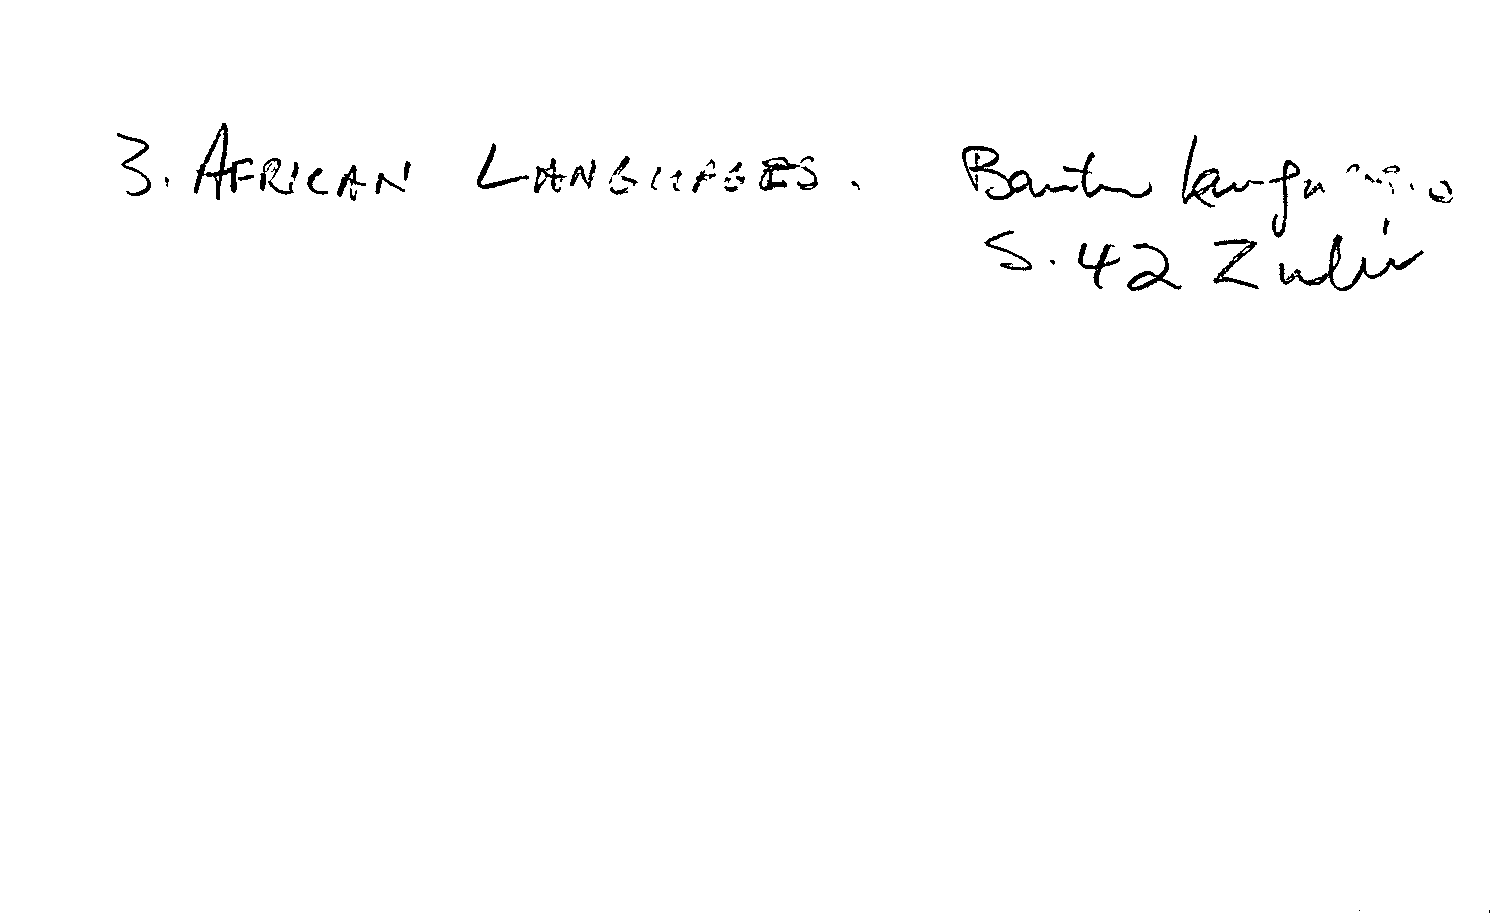 3. AFRICAN LANGUAGES. Bantu languages
S.42 Zulu